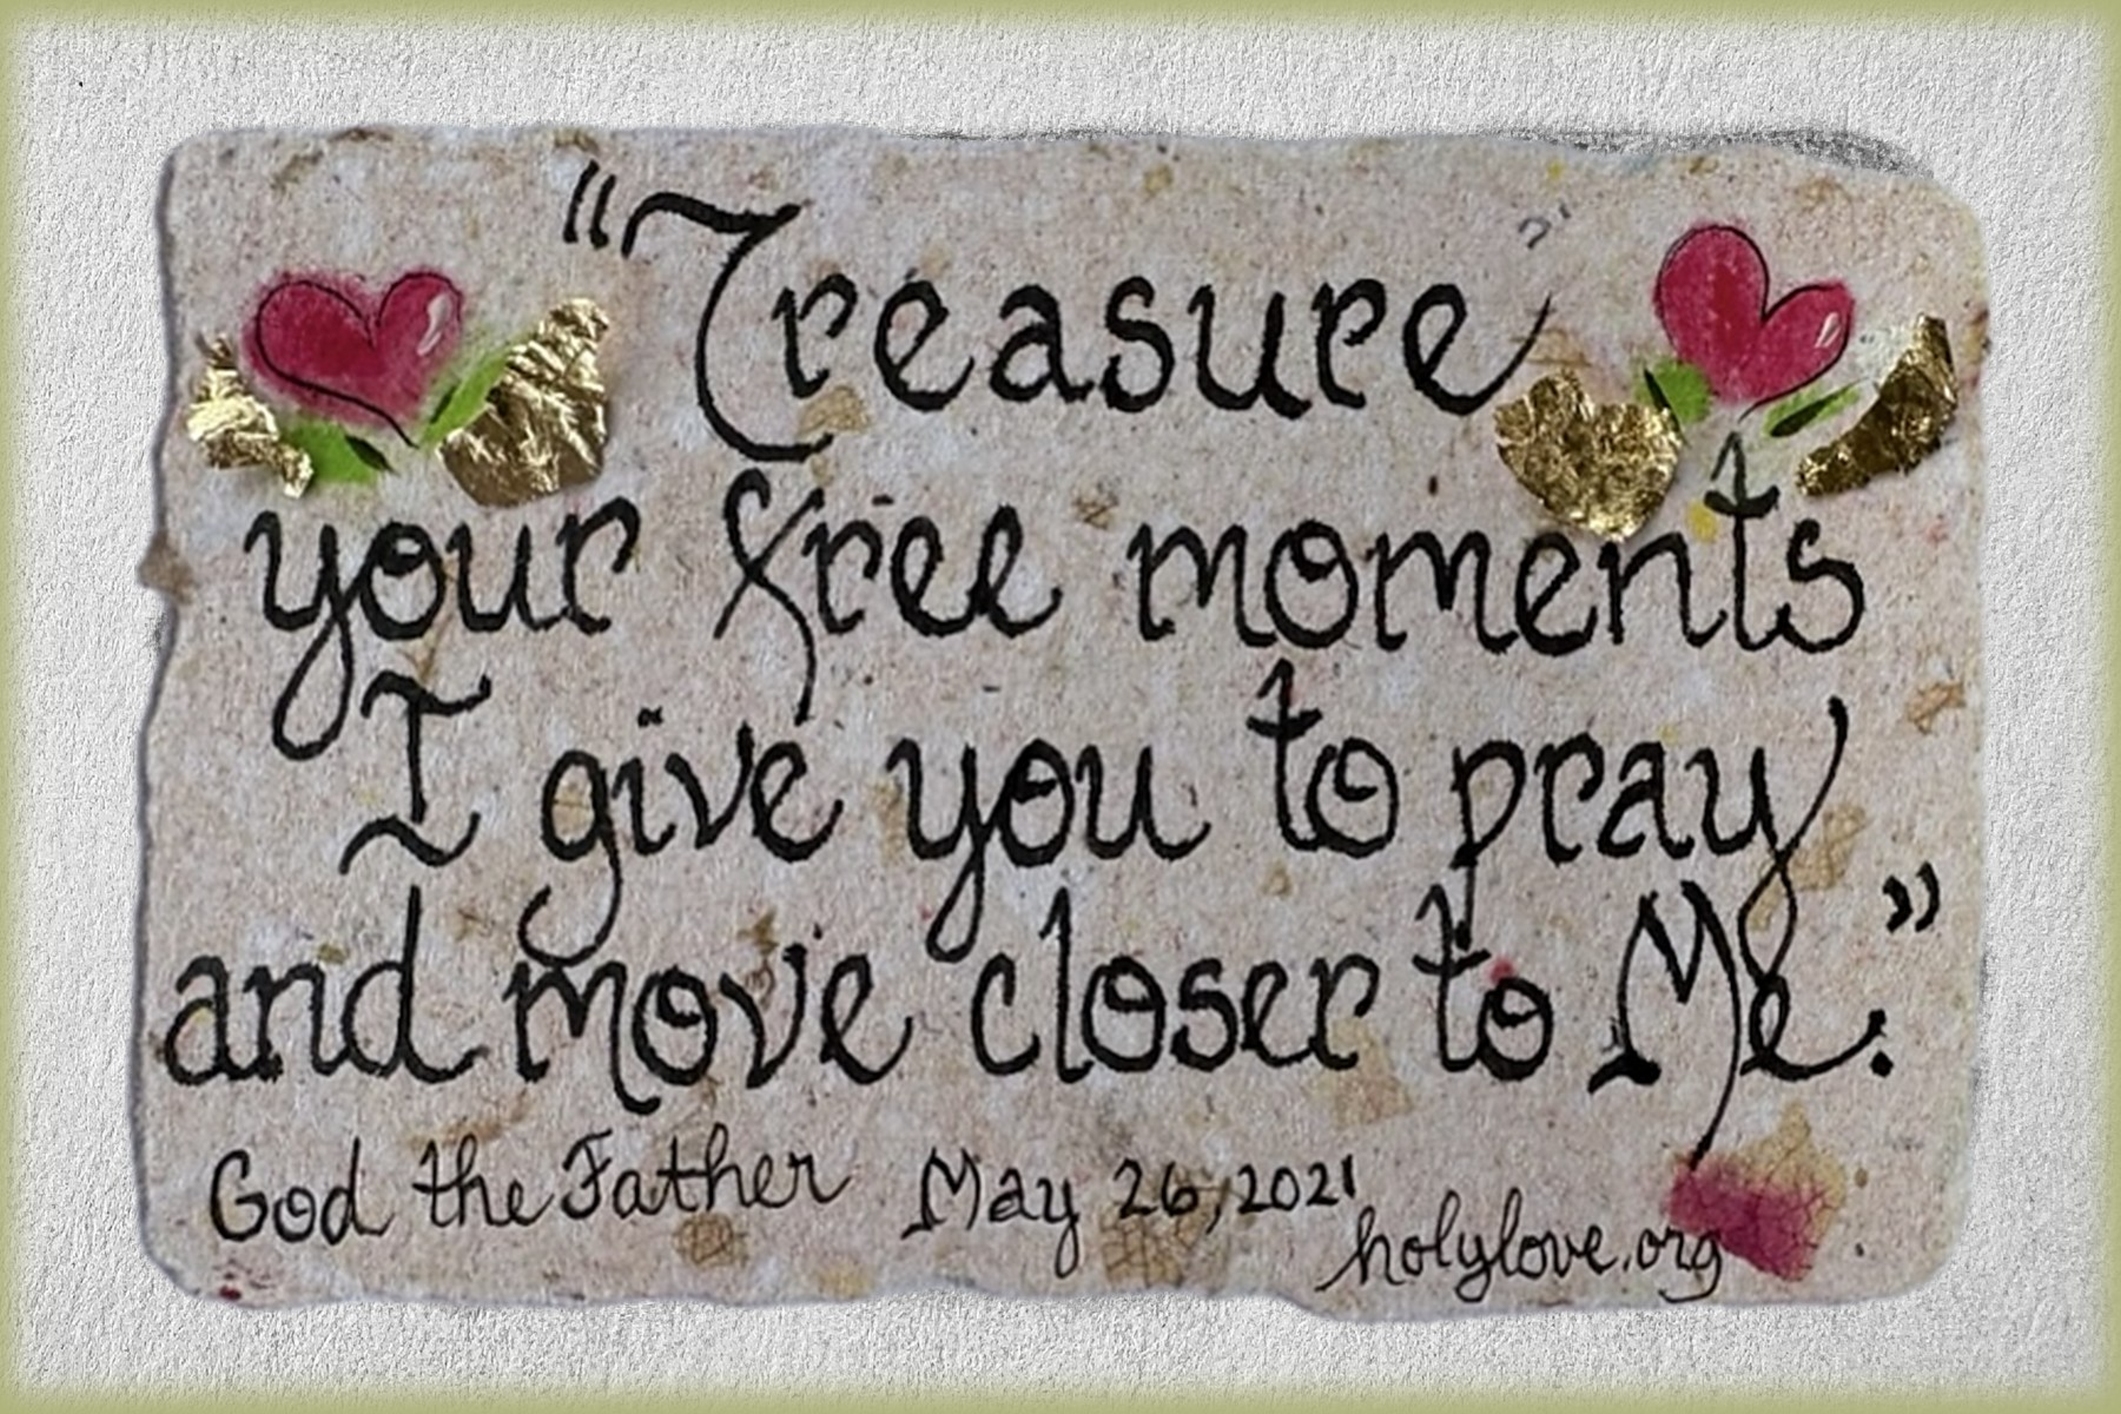 “Treasure
your free moments
I give you to pray
and move closer to Me.”
God the Father May 26, 2021
holylove.org